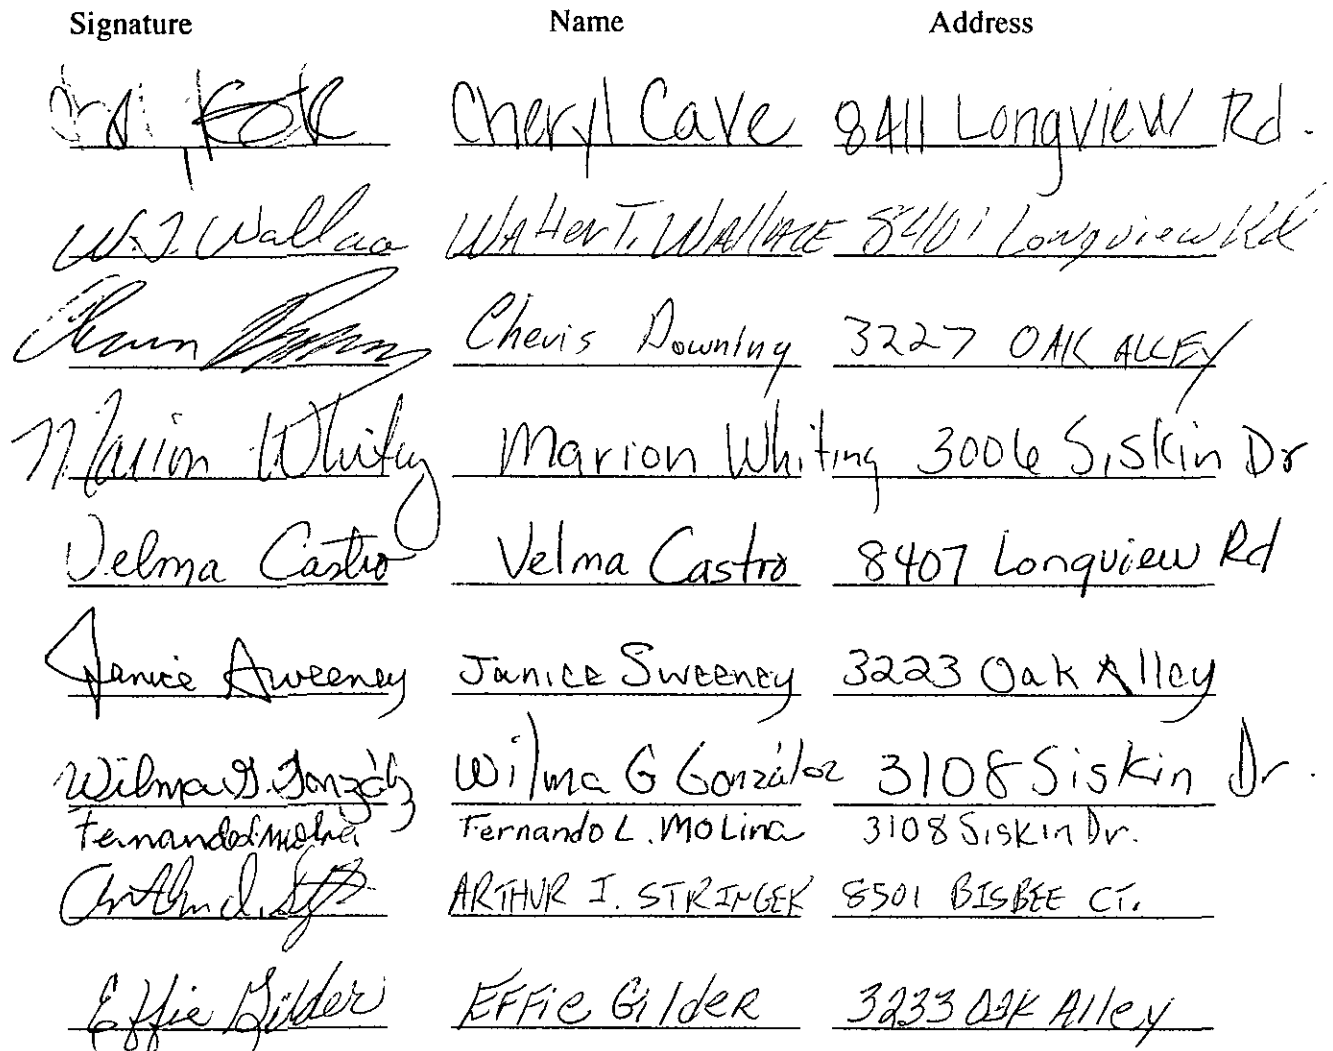 Signature Name Address
Cheryl Cave 8411 Longview Rd.
W.T. Wallace Walter T. Wallace 8401 Longview Rd
Chevis Downing 3227 OAK ALLEY
Marion Whiting Marion Whiting 3006 Siskin Dr
Velma Castro Velma Castro 8407 Longview Rd
Janice Sweeney Janice Sweeney 3223 Oak Alley
Wilma G. González Wilma G González 3108 Siskin Dr.
Fernando L. Molina Fernando L. Molina 3108 Siskin Dr.
Arthur I. ARTHUR I. STRINGER 8501 BISBEE CT.
Effie Gilder Effie Gilder 3233 Oak Alley